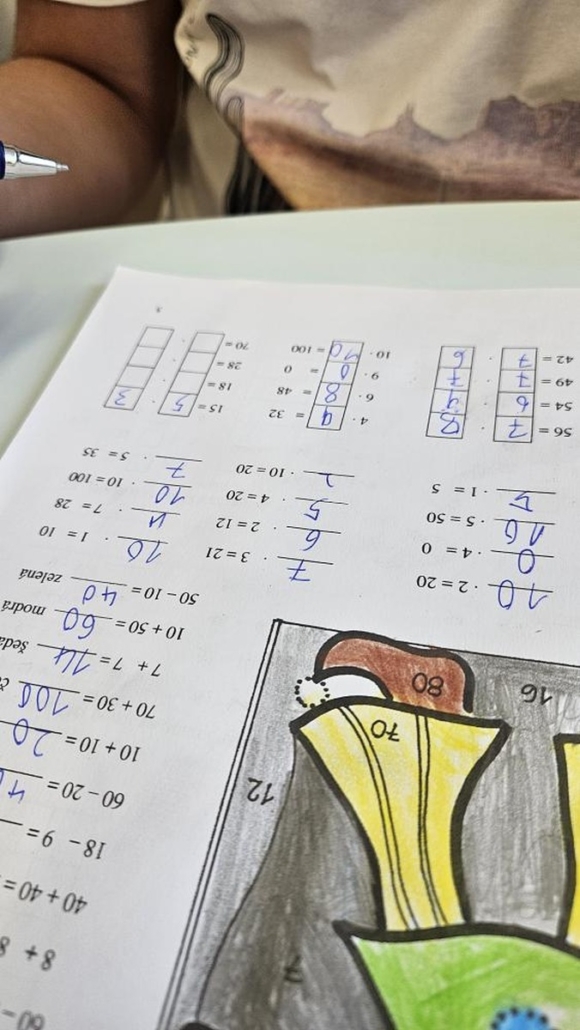 60 –
8 + 8
40 + 40 =
18 – 9 =
60 – 20 = 4
10 + 10 = 20
70 + 30 = 100 č
7 + 7 = 14 šedá
10 + 50 = 60 modrá
50 – 10 = 40 zelená
7
12
70
80
16
10 · 2 = 20
0 · 4 = 0
10 · 5 = 50
5 · 1 = 5
7 · 3 = 21
6 · 2 = 12
5 · 4 = 20
2 · 10 = 20
10 · 1 = 10
4 · 7 = 28
10 · 10 = 100
7 · 5 = 35
56 = 7 · 8
54 = 6 · 9
49 = 7 · 7
42 = 7 · 6
4 · = 32
6 · 8 = 48
9 · 0 = 0
10 · 10 = 100
15 = 5 · 3
18 = ·
28 = ·
70 = ·